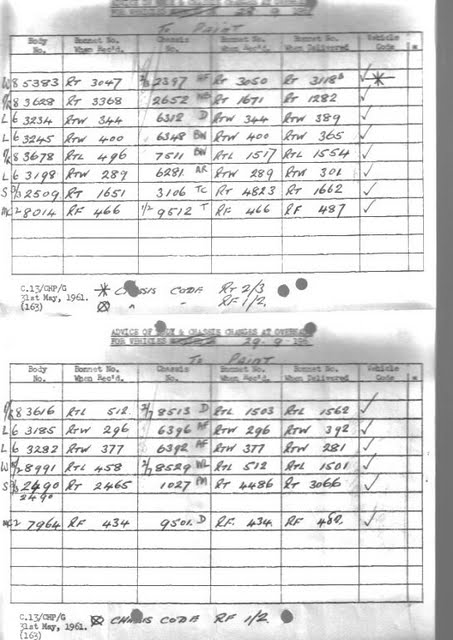 ADVICE OF BODY & CHASSIS CHANGES AT OVERHAUL
FOR VEHICLES 28.9.
To PAINT
Body No. Bonnet No. When Rec'd. Chassis No. Bonnet No. When Rec'd. Bonnet No. When Delivered Vehicle Code *
W 8 5383 RT 3047 2/3 2397 AF RT 3050 RT 3118 ✓ *
8 3628 RT 3368 2652 RT 1671 RT 1282 ✓
L 6 3234 RTW 344 6312 D RTW 344 RTW 389 ✓
L 6 3245 RTW 400 6348 BW RTW 400 RTW 365 ✓
8 3678 RTL 496 7511 BW RTL 1517 RTL 1554 ✓
L 6 3198 RTW 289 6281 AR RTW 289 RTW 301 ✓
S 2509 RT 1651 3106 TC RT 4823 RT 1662 ✓
2 8014 RF 466 1/2 9512 T RF 466 RF 487 ✓
C.13/CHP/G
31st May, 1961.
(163)
* CHASSIS CODE RT 2/3
" " RF 1/2.
ADVICE OF BODY & CHASSIS CHANGES AT OVERHAUL
FOR VEHICLES 29.9.196
To PAINT
Body No. Bonnet No. When Rec'd. Chassis No. Bonnet No. When Rec'd. Bonnet No. When Delivered Vehicle Code *
8 3616 RTL 512 3/7 8513 D RTL 1503 RTL 1562 ✓
L 6 3185 RTW 296 6396 AF RTW 296 RTW 392 ✓
L 6 3282 RTW 377 6392 AF RTW 377 RTW 281 ✓
W 8991 RTL 458 3/7 8529 WL RTL 512 RTL 1501 ✓
S 2490 RT 2465 1027 RT 4486 RT 3066 ✓
2490
2 7964 RF 434 9501 D RF 434. RF 480. ✓
C.13/CHP/G
31st May, 1961.
(163)
CHASSIS CODE RF 1/2.